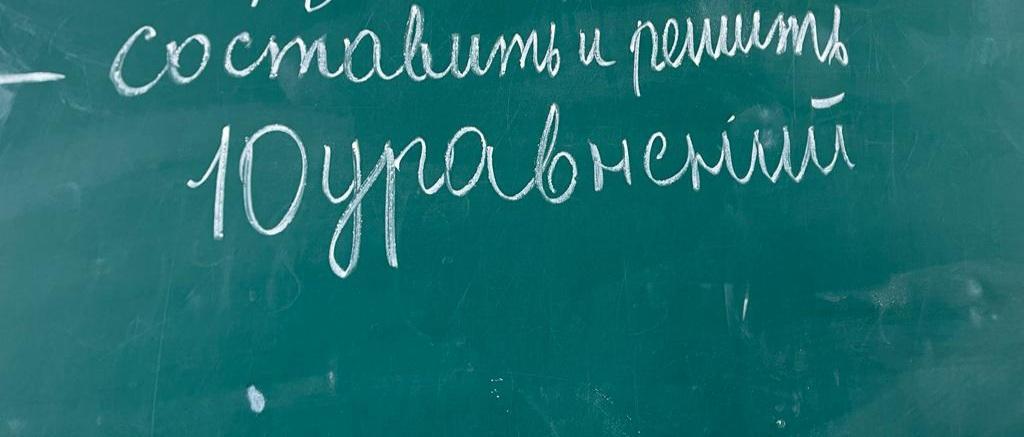 составить и решить
10 уравнений